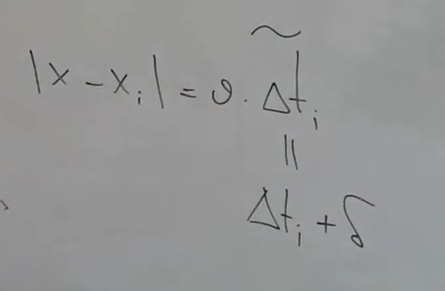 |x - x_i| = v · \widetilde{Δt}_i
||
Δt_i + δ